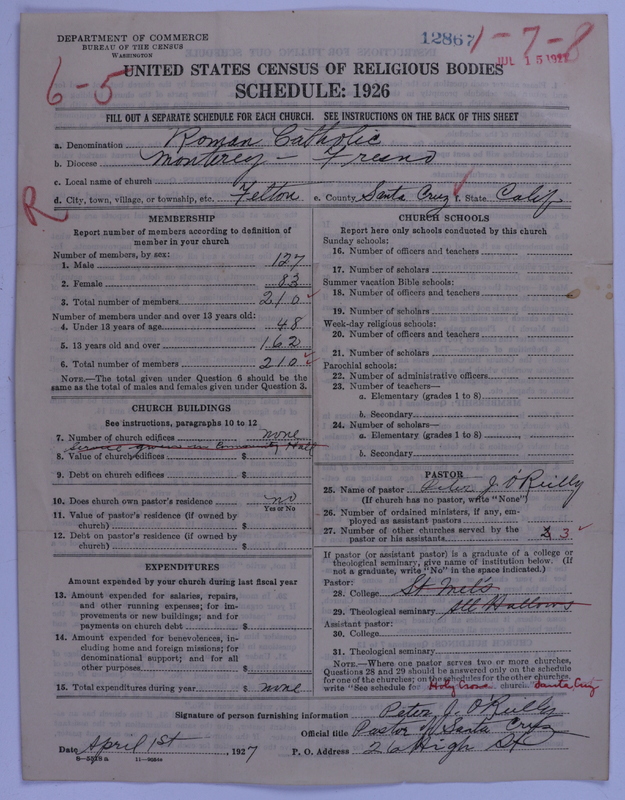 DEPARTMENT OF COMMERCE
BUREAU OF THE CENSUS
WASHINGTON
12867
1-7-8
6-5
UNITED STATES CENSUS OF RELIGIOUS BODIES
SCHEDULE: 1926
FILL OUT A SEPARATE SCHEDULE FOR EACH CHURCH. SEE INSTRUCTIONS ON THE BACK OF THIS SHEET
a. Denomination Roman Catholic
b. Diocese Monterey - Fresno
c. Local name of church
d. City, town, village, or township, etc. Felton e. County Santa Cruz f. State Calif
R
MEMBERSHIP
Report number of members according to definition of
member in your church
Number of members, by sex:
1. Male 127
2. Female 83
3. Total number of members 210
Number of members under and over 13 years old:
4. Under 13 years of age 48
5. 13 years old and over 162
6. Total number of members 210
NOTE.—The total given under Question 6 should be the
same as the total of males and females given under Question 3.
CHURCH BUILDINGS
See instructions, paragraphs 10 to 12
7. Number of church edifices none
Service given in Community Hall
8. Value of church edifices $
9. Debt on church edifices $
10. Does church own pastor's residence no
Yes or No
11. Value of pastor's residence (if owned by
church) $
12. Debt on pastor's residence (if owned by
church) $
EXPENDITURES
Amount expended by your church during last fiscal year
13. Amount expended for salaries, repairs,
and other running expenses; for im-
provements or new buildings; and for
payments on church debt $
14. Amount expended for benevolences, in-
cluding home and foreign missions; for
denominational support; and for all
other purposes $
15. Total expenditures during year $ none
CHURCH SCHOOLS
Report here only schools conducted by this church
Sunday schools:
16. Number of officers and teachers
17. Number of scholars
Summer vacation Bible schools:
18. Number of officers and teachers
19. Number of scholars
Week-day religious schools:
20. Number of officers and teachers
21. Number of scholars
Parochial schools:
22. Number of administrative officers
23. Number of teachers—
a. Elementary (grades 1 to 8)
b. Secondary
24. Number of scholars—
a. Elementary (grades 1 to 8)
b. Secondary
PASTOR
25. Name of pastor Peter J. O'Reilly
(If church has no pastor, write "None")
26. Number of ordained ministers, if any, em-
ployed as assistant pastors
27. Number of other churches served by the
pastor or his assistants 3
If pastor (or assistant pastor) is a graduate of a college or
theological seminary, give name of institution below. (If
not a graduate, write "No" in the space indicated.)
Pastor:
28. College St Mel's
29. Theological seminary All Hallows
Assistant pastor:
30. College
31. Theological seminary
NOTE.—Where one pastor serves two or more churches,
Questions 28 and 29 should be answered only on the schedule
for one of the churches; on the schedules for the other churches,
write "See schedule for Holy Cross church Santa Cruz
Signature of person furnishing information Peter J. O'Reilly
Official title Pastor of Santa Cruz
Date April 1st, 1927 P. O. Address 26 High St
8-5518a 11-9084a